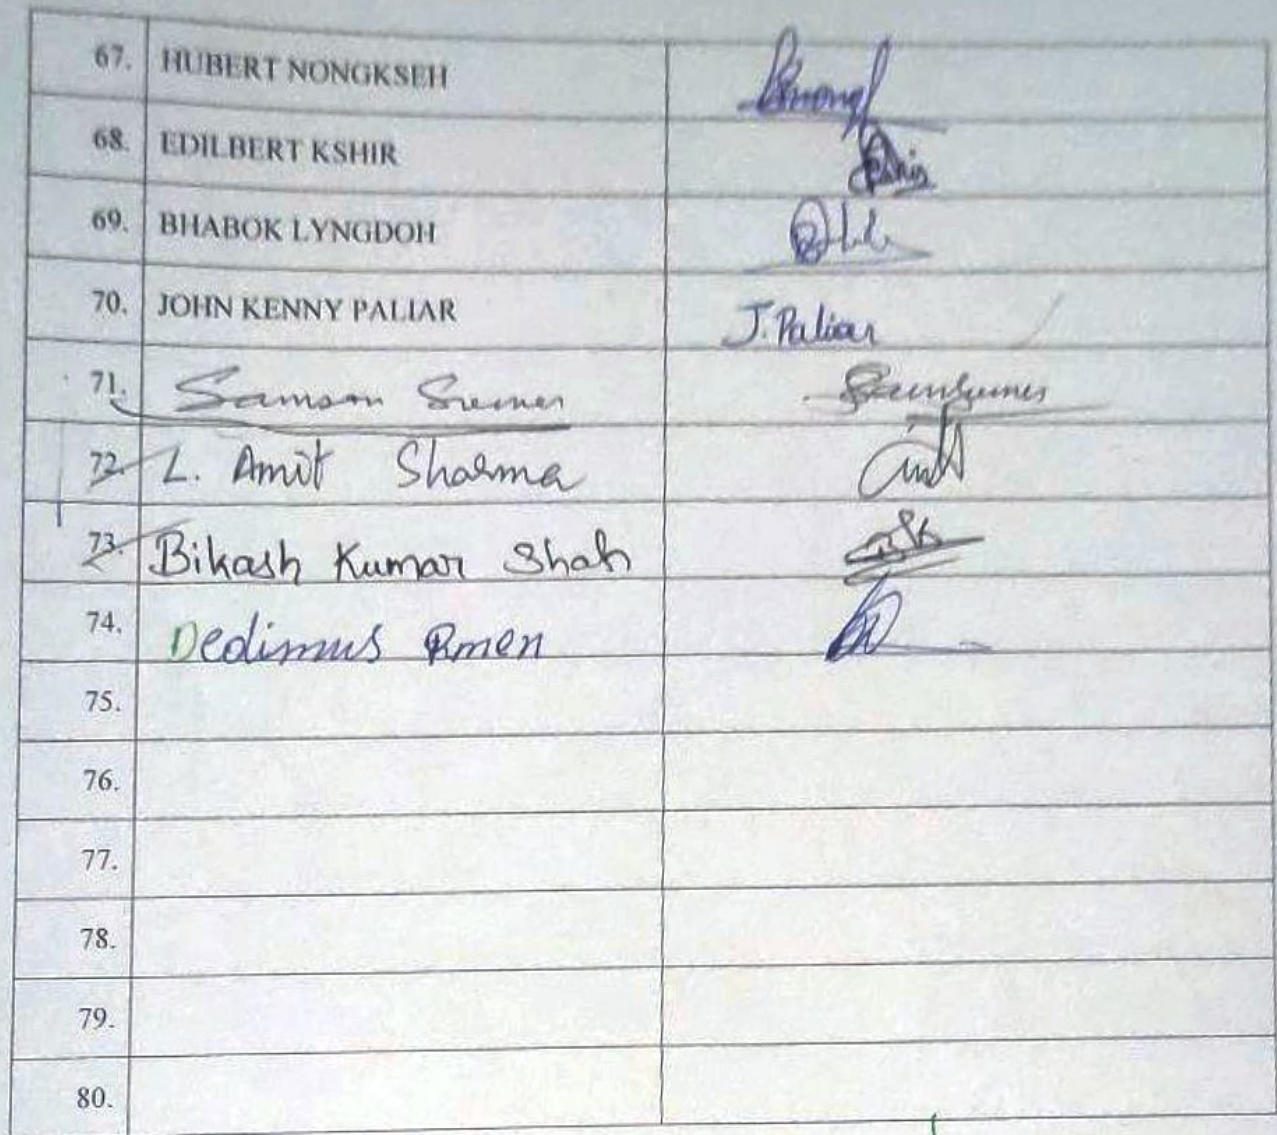 67. HUBERT NONGKSEH
68. EDILBERT KSHIR
69. BHABOK LYNGDOH
70. JOHN KENNY PALIAR J. Paliar
71. Samson
72. L. Amit Sharma
73. Bikash Kumar Shah
74. Dedimus Rmen
75.
76.
77.
78.
79.
80.